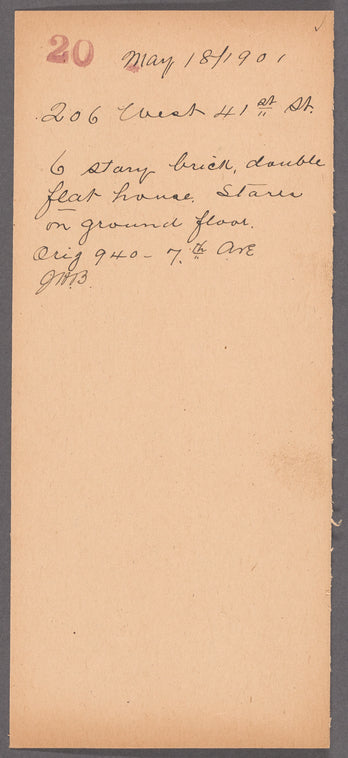 20 May 18/1901
206 West 41st St.
6 story brick, double
flat house. Stores
on ground floor.
Orig 940 - 7th Ave